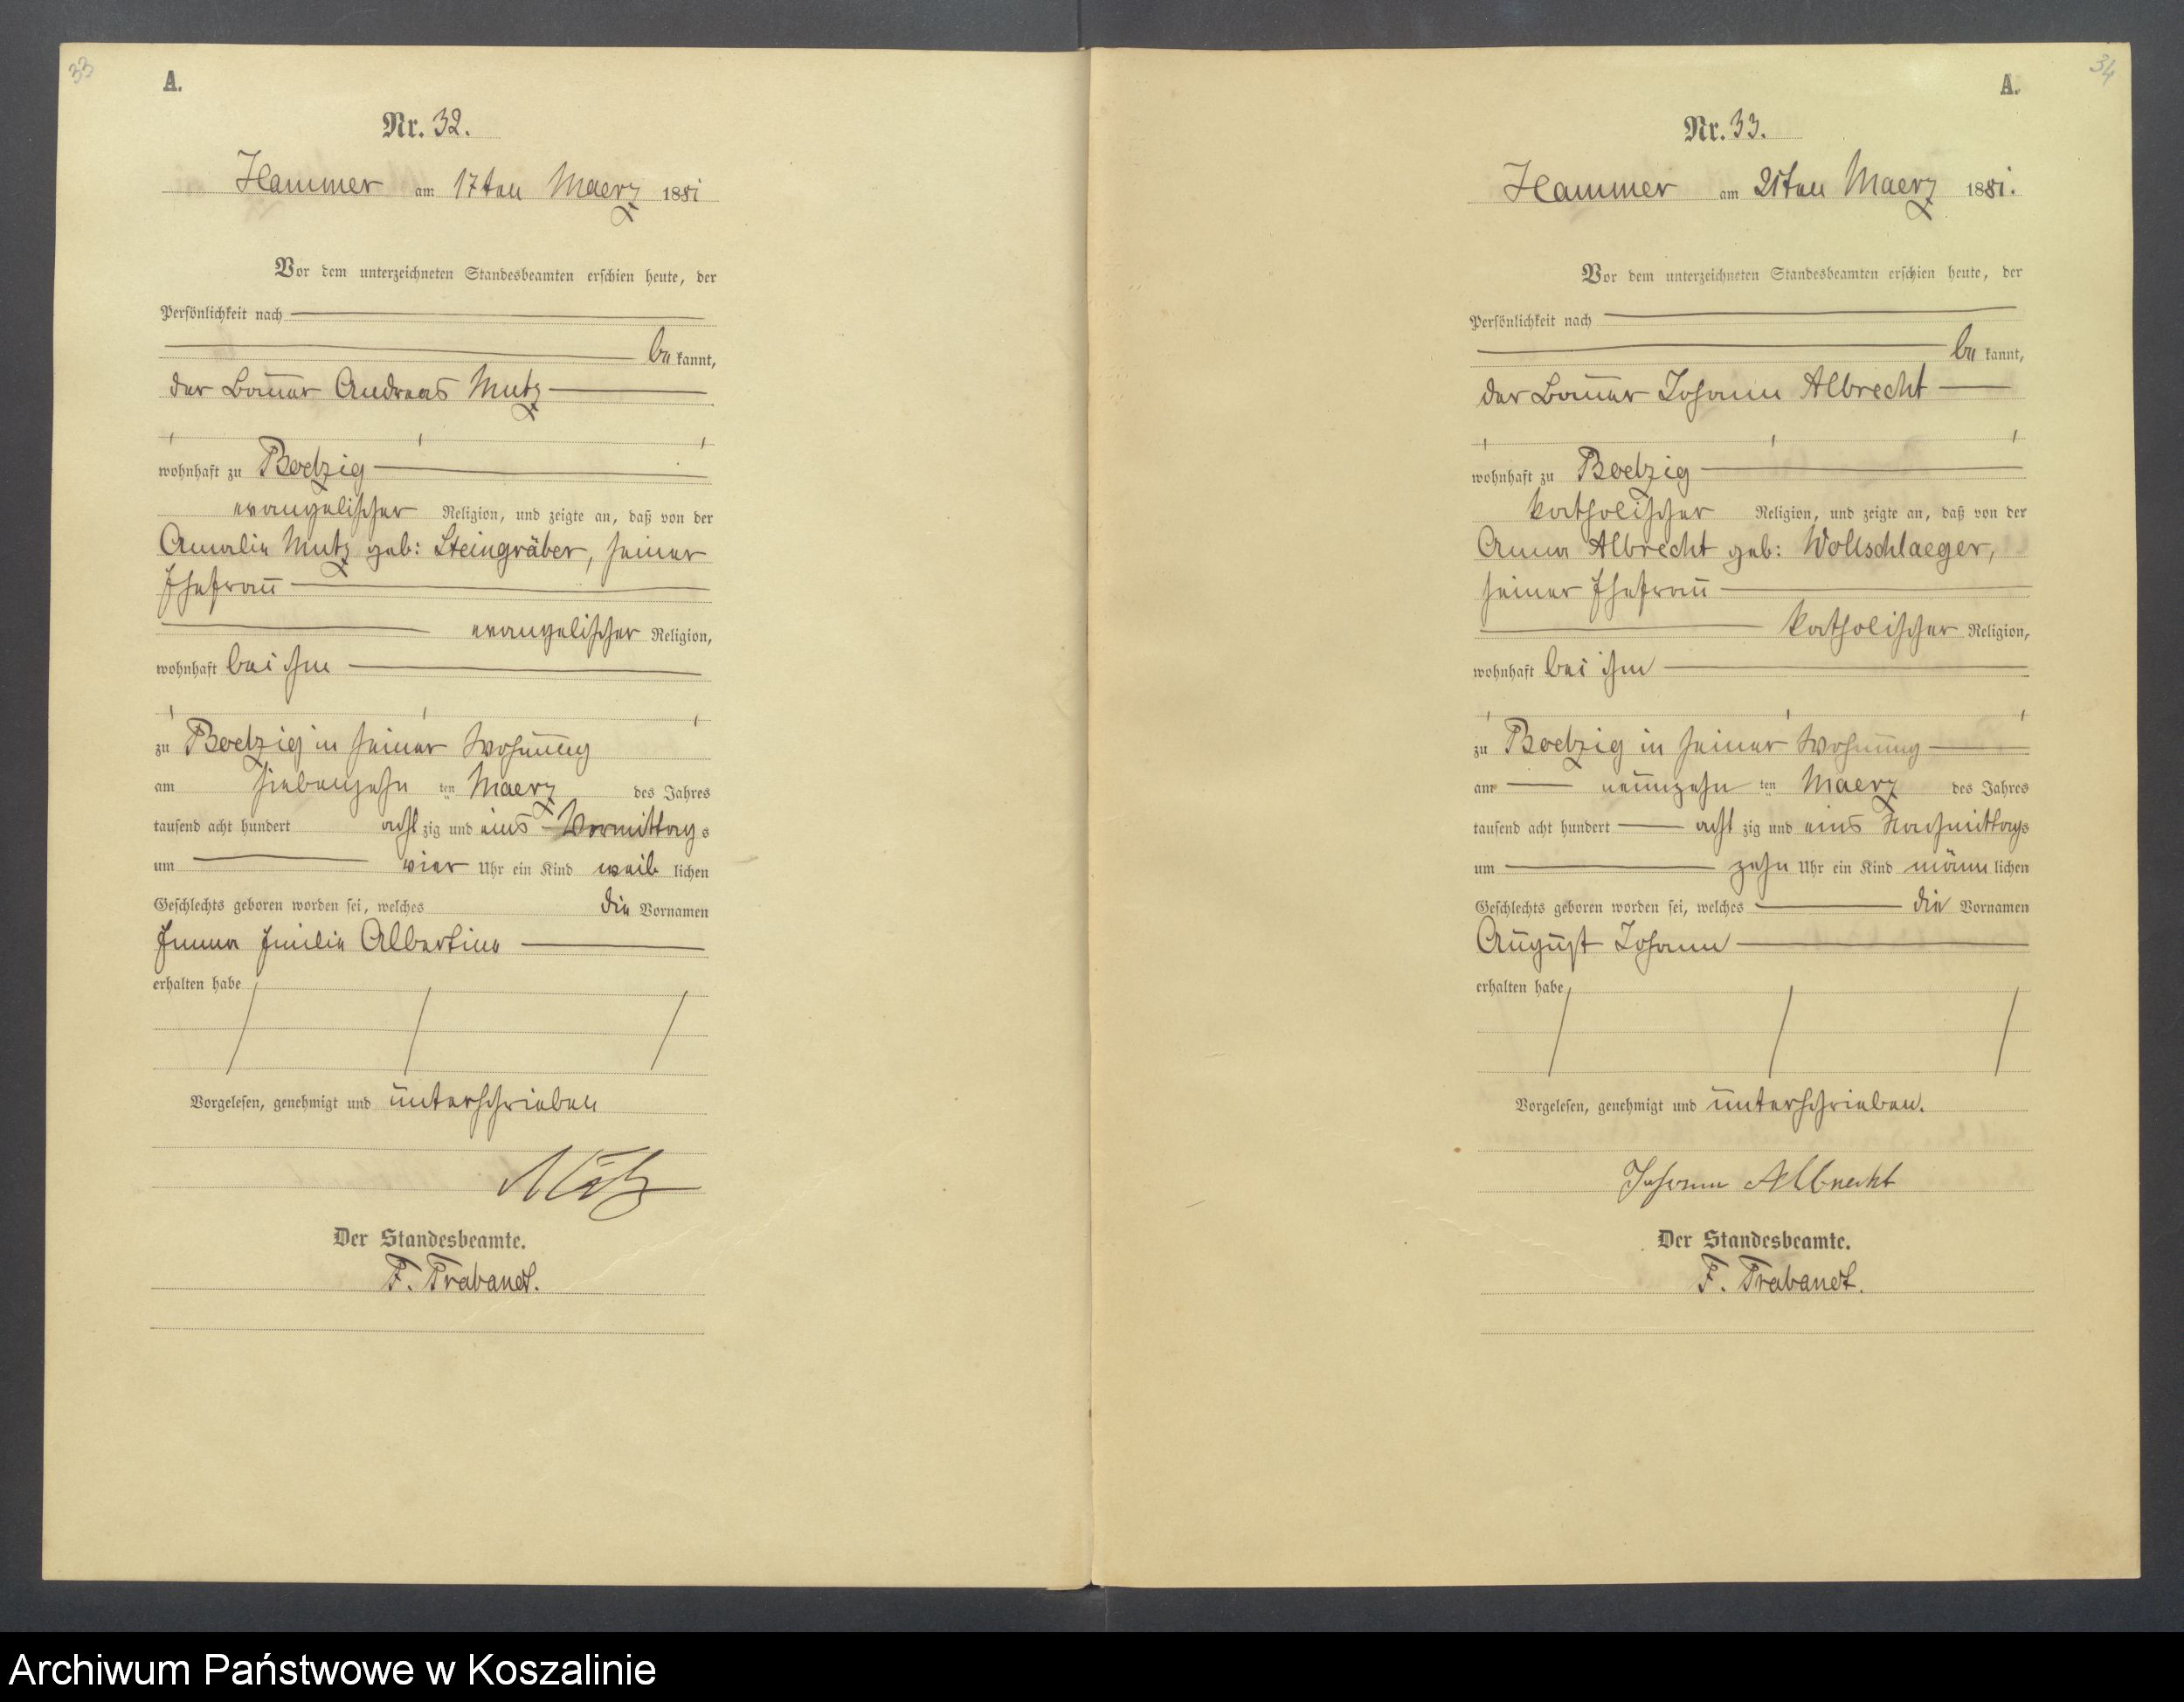 33
A.
Nr. 32.
Hammer am 17ten Maerz 1881
Vor dem unterzeichneten Standesbeamten erschien heute, der
Persönlichkeit nach
be kannt,
der Bauer Andreas Mutz
wohnhaft zu Boetzig
evangelischer Religion, und zeigte an, daß von der
Amalie Mutz geb: Steingräber, seiner
Ehefrau
evangelischer Religion,
wohnhaft bei ihm
zu Boetzig in seiner Wohnung
am siebenzehn ten Maerz des Jahres
tausend acht hundert acht zig und eins Vormittags
um vier Uhr ein Kind weib lichen
Geschlechts geboren worden sei, welches die Vornamen
Emma Emilie Albertine
erhalten habe
Vorgelesen, genehmigt und unterschrieben
Mutz
Der Standesbeamte.
F. Trabandt.
34
A.
Nr. 33.
Hammer am 21ten Maerz 1881.
Vor dem unterzeichneten Standesbeamten erschien heute, der
Persönlichkeit nach
be kannt,
der Bauer Johann Albrecht
wohnhaft zu Boetzig
katholischer Religion, und zeigte an, daß von der
Anna Albrecht geb: Wollschlaeger,
seiner Ehefrau
katholischer Religion,
wohnhaft bei ihm
zu Boetzig in seiner Wohnung
am neunzehn ten Maerz des Jahres
tausend acht hundert acht zig und eins Nachmittags
um zehn Uhr ein Kind männ lichen
Geschlechts geboren worden sei, welches die Vornamen
August Johann
erhalten habe
Vorgelesen, genehmigt und unterschrieben.
Johann Albrecht
Der Standesbeamte.
F. Trabandt.
Archiwum Państwowe w Koszalinie